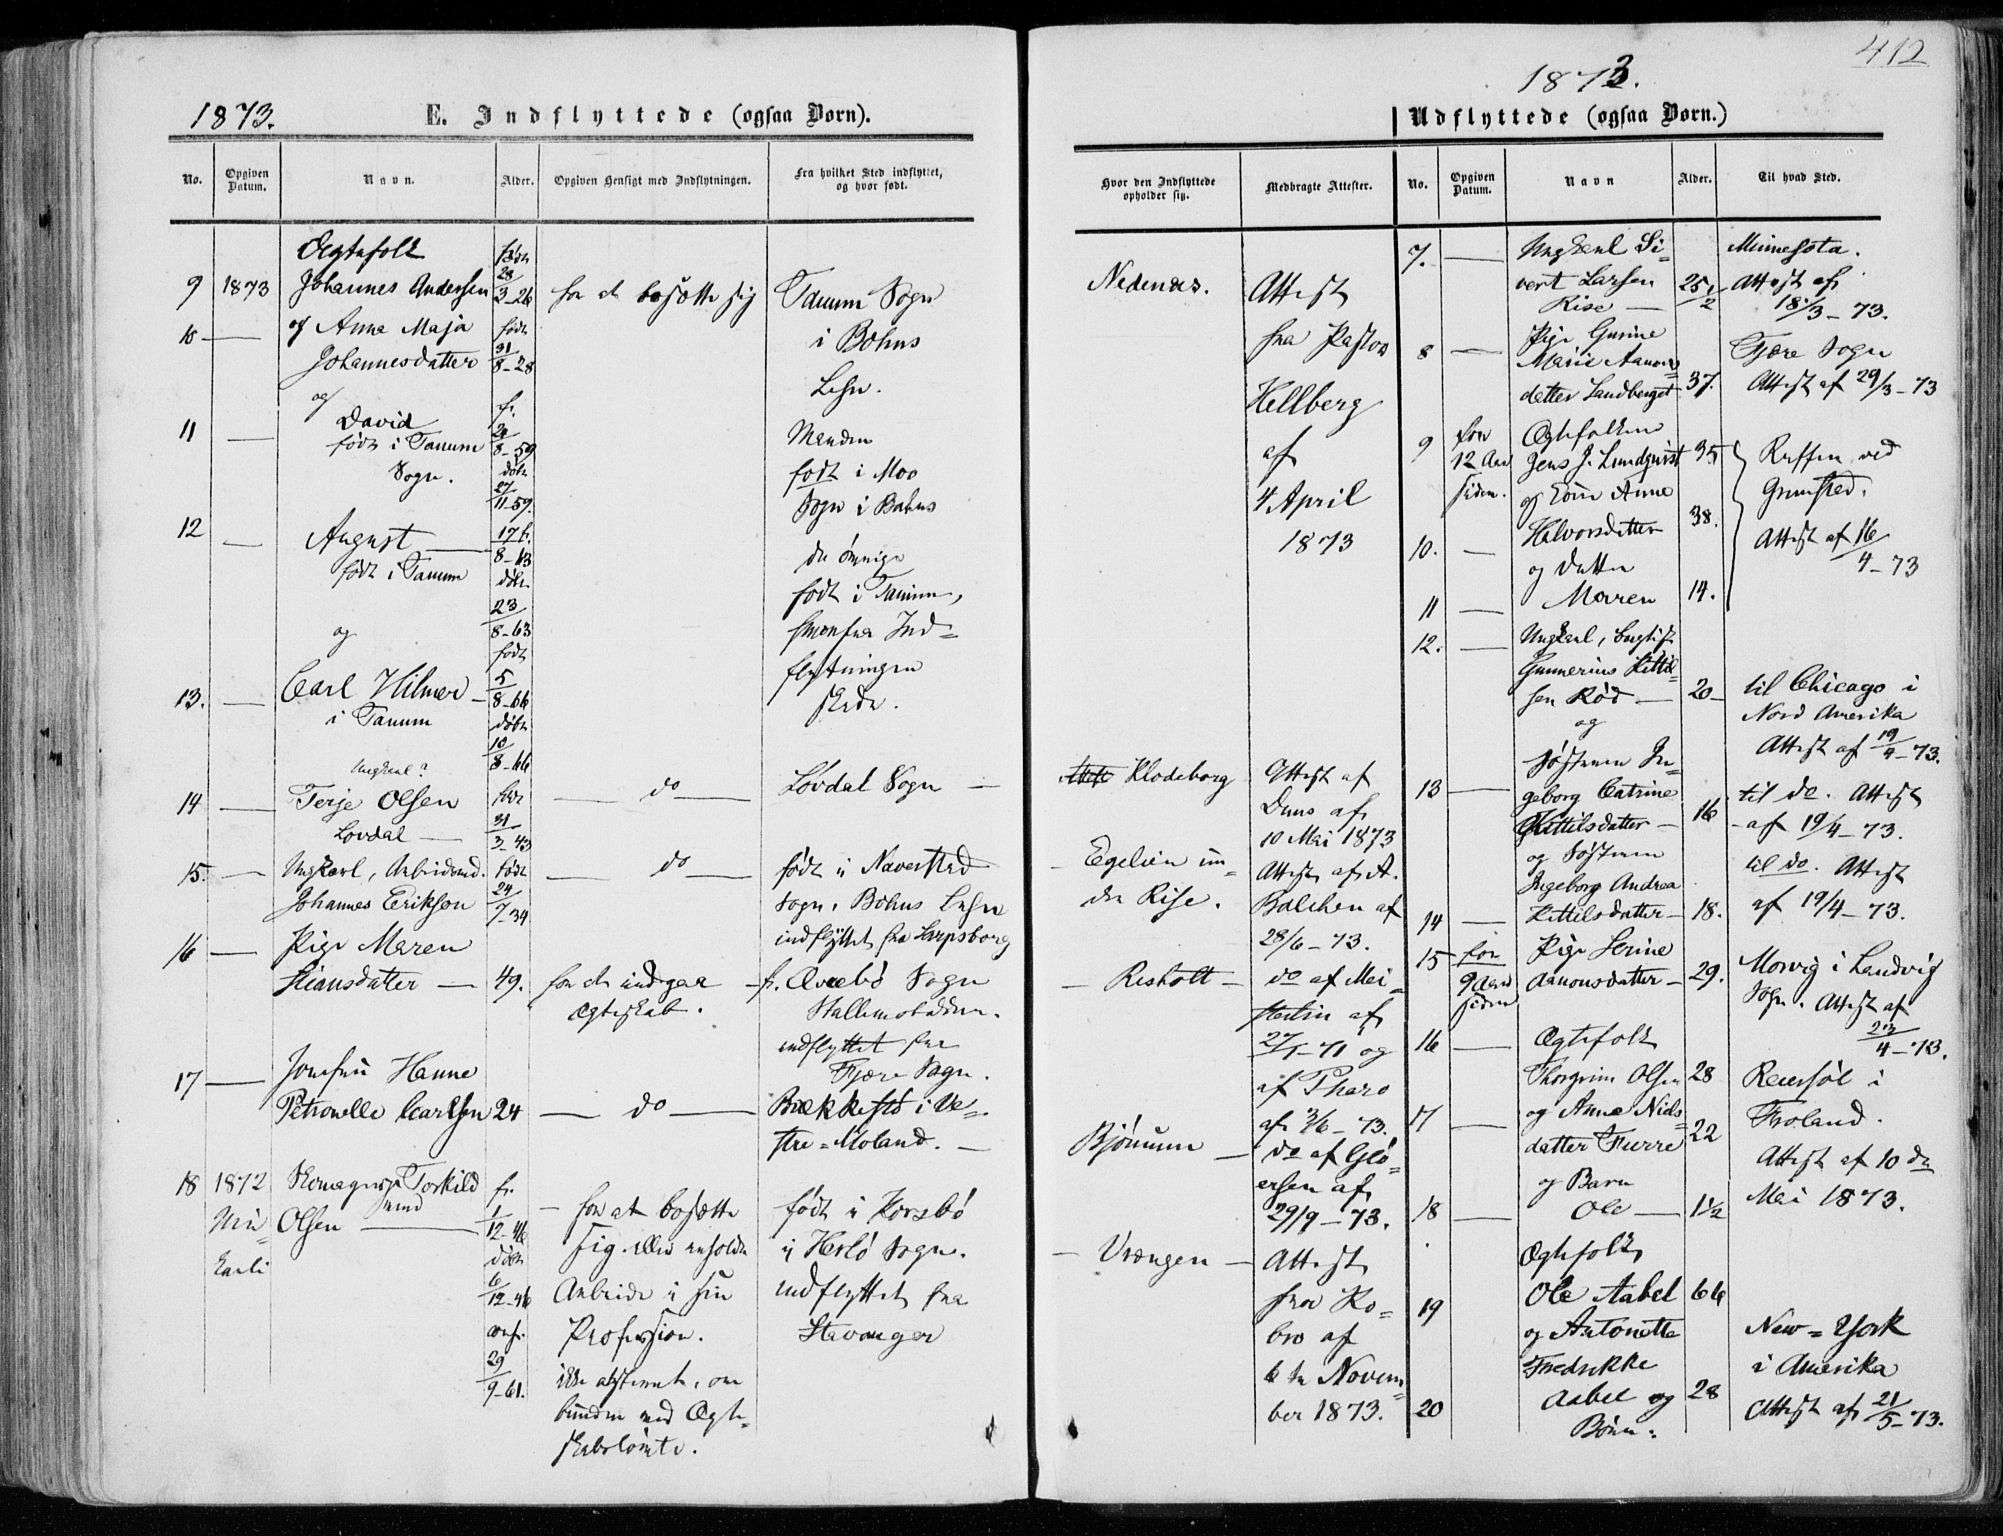 412
1873.
E. Indflyttede (ogsaa Børn).
No.
Opgiven
Datum.
Navn.
Alder.
Opgiven Hensigt med Indflytningen.
Fra hvilket Sted indflyttet,
og hvor født.
Ægtefolk
født
9 1873 Johannes Andersen 28/3-26 for at bosætte sig Tanum Sogn
10 — og Anne Maja født i Bohus
Johannesdatter 31/8-28 Lehn.
og
David f.
11 — født i Tanum 8-59 Manden
Sogn. døbt født i Moo
27/11-59. Sogn i Bahus
12 — August — 17 f./8-63 de øvrige
født i Tanum døbt født i Tanum,
23/8-63 hvorfra Ind=
og født flytningen
13. — Carl Hilmer — 5/8-66 skede.
i Tanum døbt
10/8-66
Ungkarl?
14 — Terje Olsen født — do — Løvdal Sogn —
Lovdal — 31/3-43
15. — Ungkarl, Arbeidsmd. født — do — født i Naverstad
Johannes Erikson 24/7-34 Sogn, Bohus Lehn
indflyttet fra Sarpsborg
16 — Pige Maren
— 49. for at indgaa f. Øvebø Sogn
Ægteskab.
indflyttet fra
Fjære Sogn.
17 — Jomfru Hanne
Petronelle Carlsen 24 — do — i Ve=
stre=Moland. —
18 1872 Torkild f. — for at bosætte født i
Olsen — 1/12-46 sig eller erholde i Herlø Sogn.
døbt
6/12-46 Arbeide i sin indflyttet fra
conf. Profession. Stavanger
29/9-61. ikke
bunden ved Ægte=
skabsløfte.
1873.
Udflyttede (ogsaa Børn.)
Hvor den Indflyttede
opholder sig.
Medbragte Attester.
No.
Opgiven
Datum.
Navn
Alder.
Til hvad Sted.
Nedenæs.
Attest
fra Pastor
Hellberg
af
4 April
1873
Klodeborg — Attest af
Duus af
10 Mai 1873
— Egelien un=
der Rise.
Attest af A.
Balchen af
28/6-73.
— Resholt — do af Mei=
af
27/1-71 og
af Tharo
af 3/6-73.
Bjørnum — do af Glø=
ersen af
29/9-73.
— Vrængen — Attest
fra Ko=
bro af
6te Novem=
ber 1873.
7. — Ungkarl Si= Minnesota.
vert Larsen 25 1/2 Attest af
Rise — 18/3-73.
8 — Pige Gunine Fjære Sogn
Marie Aanons=
datter Landberget 37. Attest af 29/3-73
9 for Ægtefolkene
12 Aar Jens J. Lundqvist 35 ved
siden. og Anne Grimsted.
10. — Halvorsdatter 38. Attest af 16/4-73
og datter
11 — Maren 14.
12. — Ungkarl,
Gunnerius Kittil=
sen Rød — 20 — til Chicago i
og Nord Amerika
Attest af 19/4-73.
13 — Søsteren In=
geborg Catrine til do. Attest
Kittilsdatter — 16 — af 19/4-73.
og Søsteren til do. Attest
Ingeborg Andrea
14 — Kittilsdatter — 18. af 19/4-73.
15 for Pige Serine
9 Aar Aanonsdatter — 29. Morvig i Landvig
siden Sogn. Attest af
4-73.
16 — Ægtefolk
Thorgrim Olsen 28 Reiersøl i
17 — og Anne Niels= Froland.
datter Furre 22
og Barn Attest af 10de
18 — Ole — 1 1/2 Mai 1873.
Ægtefolk
19 Ole Aabel 66
og Antonette New=York
Fredrikke i Amerika
20 Aabel og 28 Attest af 21/5-73.
Børn.